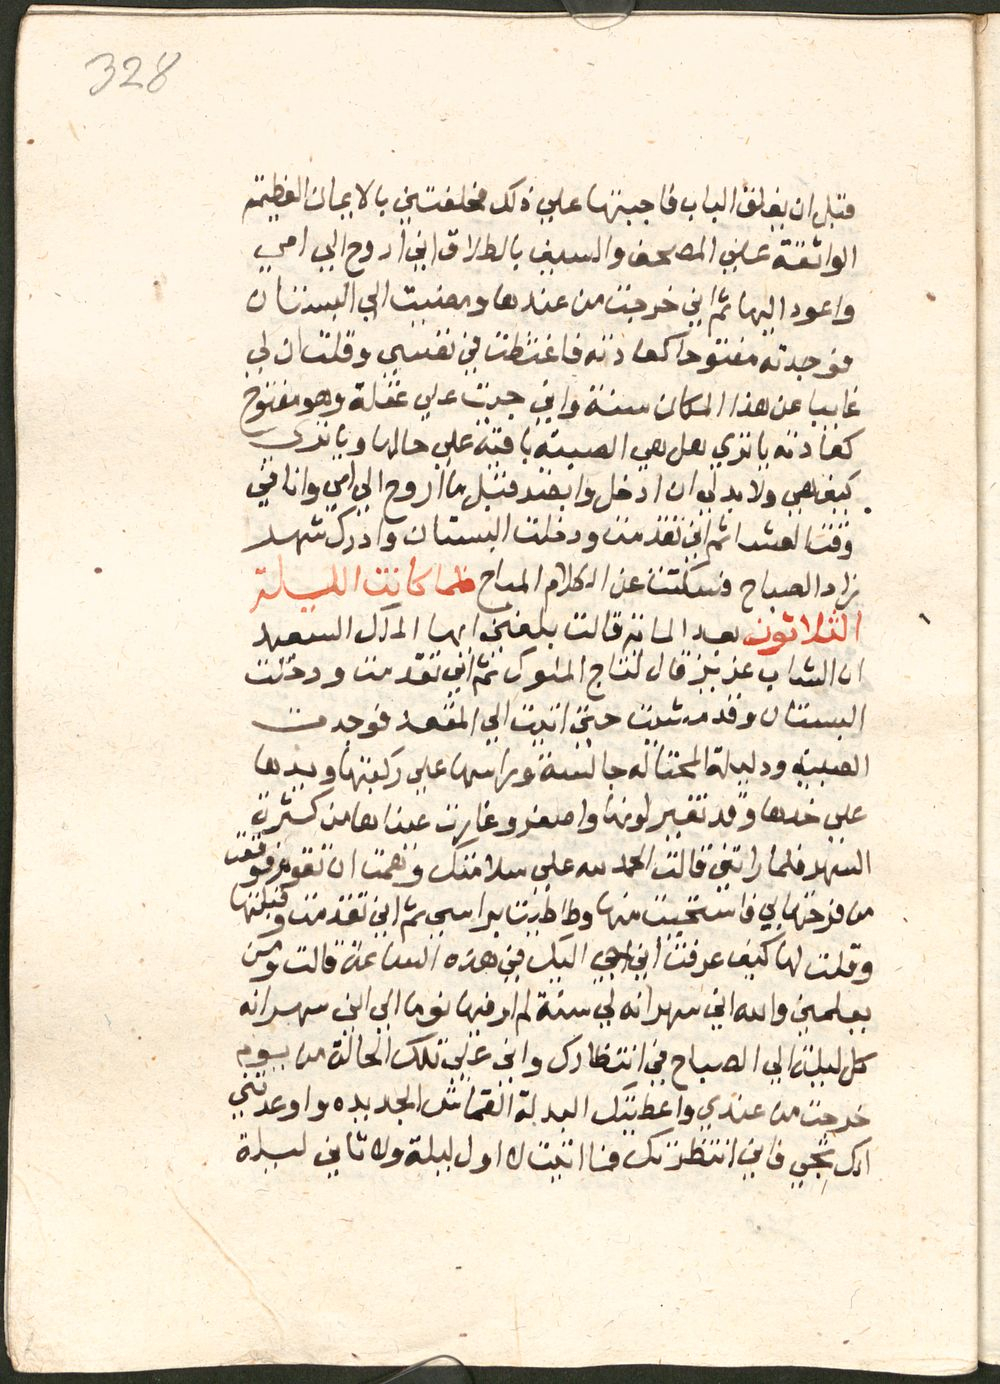 328
قبل ان يغلق الباب فاجبتها علي ذلك فحلفتني بالايمان العظيمة
الواثقة علي المصحف والسيف بالطلاق اني اروح الي امي
واعود اليها ثم اني خرجت من عندها ومضيت الي البستان
فوجدته مفتوحا كعادته فاغتظت في نفسي وقلت ان لي
غايبا عن هذا المكان سنة واني جيت علي غفلة وهو مفتوح
كعادته يا تري هل هي الصبية باقية علي حالها ويا تري
كيف هي ولا بد لي ان ادخل وابصر قبل ما اروح الي امي وانا في
وقت العشا ثم اني تقدمت ودخلت البستان وادرك شهر
زاد الصباح فسكتت عن الكلام المباح فلما كانت الليلة
الثلاثون بعد الماية قالت بلغني ايها الملك السعيد
ان الشاب عزيز قال لتاج الملوك ثم اني تقدمت ودخلت
البستان وقد مشيت حتي اتيت الي المقعد فوجدت
الصبية ودليلة المحتالة جالسة وراسها علي ركبتها ويدها
علي خدها وقد تغير لونها واصفر وغارت عيناها من كثرة
السهر فلما راتني قالت الحمد لله علي سلامتك وهمت ان تقوم فوقعت
من فرحتها بي فاستحيت منها وطاطيت براسي ثم اني تقدمت وقبلتها
وقلت لها كيف عرفتي اني اجي اليك في هذه الساعة قالت ومن
يعلمني والله اني سهرانه لي سنة لم ارفيها نوما الي اني سهرانه
كل ليلة الي الصباح في انتظارك واني علي تلك الحالة من يوم
خرجت من عندي واعطيتك البدلة القماش الجديده واوعدتني
انك تجي فاني انتظرتك فما اتيت لا اول ليلة ولا تاني ليلة